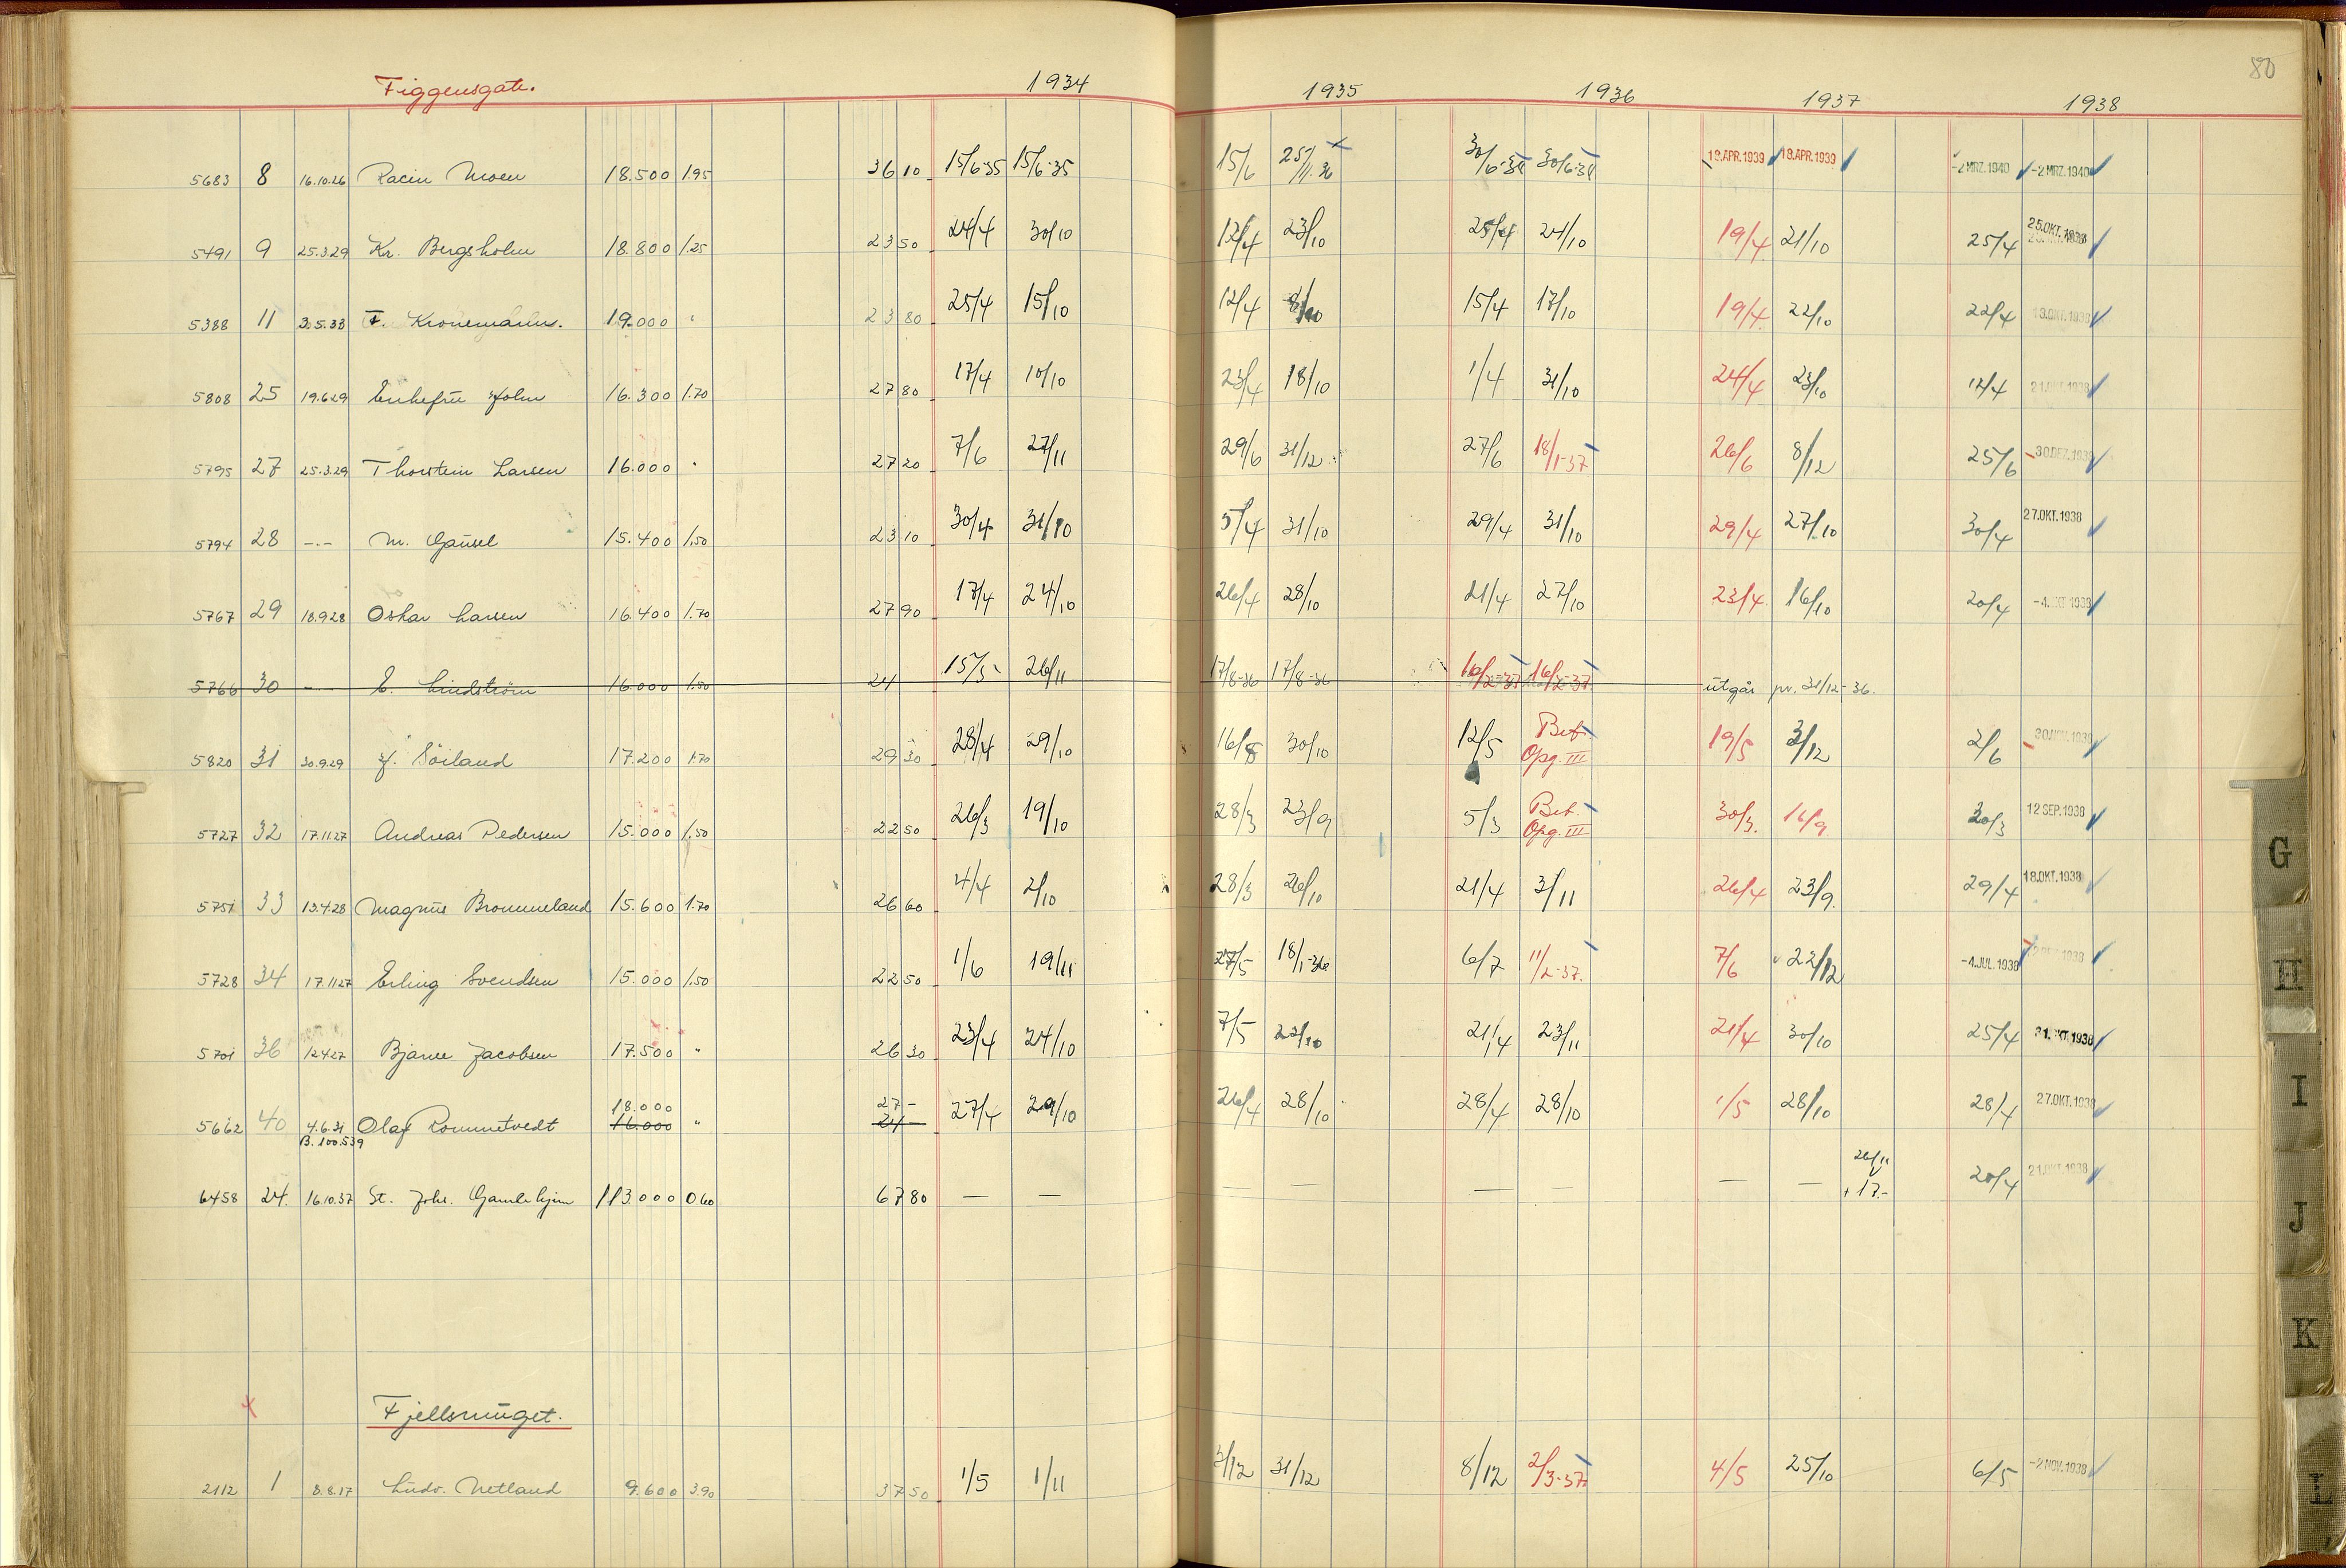 80
Figgensgate. 1934 1935 1936 1937 1938
5683 8 16.10.26 Racin Moen 18.500 1.95 36 10 15/6-35 15/6-35 15/6 25/11.36 30/6-38 30/6-38 18.APR.1939 18.APR.1939 -2 MRZ.1940 -2 MRZ.1940
5491 9 25.3.29 Kr. Bergsholm 18.800 1.25 23 50 24/4 30/10 12/4 23/10 25/4 21/10 19/4 21/10 25/4 25.OKT.1938
5388 11 30.5.33 F. Kronemann. 19.000 " 23 80 25/4 15/10 12/4 8/10 15/4 17/10 19/4 22/10 22/4 13.OKT.1938
5808 25 19.6.29 Enkefru Holm 16.300 1.70 27 80 17/4 10/10 23/4 18/10 1/4 31/10 24/4 23/10 12/4 21.OKT.1938
5795 27 25.3.29 Thorstein Larsen 16.000 " 27 20 7/6 27/11 29/6 31/12 27/6 18/1-37 26/6 8/12 25/6 30.DEZ.1938
5794 28 -"- M. Gausel 15.400 1.50 23 10 30/4 31/10 5/4 31/10 29/4 31/10 29/4 27/10 30/4 27.OKT.1938
5767 29 18.9.28 Oskar Larsen 16.400 1.70 27 90 17/4 24/10 26/4 28/10 21/4 27/10 23/4 16/10 20/4 -4.OKT.1938
5766 30 -"- E. Lindström 16.000 1.50 24 15/5 26/11 17/8-36 17/8-36 16/2-37 16/2-37 utgår pr. 31/12-36.
5820 31 30.9.29 J. Söiland 17.200 1.70 29 30 28/4 29/10 16/8 30/10 12/5 Bet. Opg. III 19/5 3/12 2/6 30.NOV.1938
5727 32 17.11.27 Andreas Pedersen 15.000 1.50 22 50 26/3 19/10 28/3 23/9 5/3 Bet. Opg. III 30/3. 16/9 30/3 12.SEP.1938
5751 33 13.4.28 Magnus Brommeland 15.600 1.70 26 60 4/4 2/10 28/3 26/10 21/4 3/11 26/4 23/9. 29/4 18.OKT.1938
5728 34 17.11.27 Erling Svendsen 15.000 1.50 22 50 1/6 19/11 27/5 18/1-36 6/7 11/2-37. 7/6 22/12 -4.JUL.1938 1938
5701 36 12.4.27 Bjarne Jacobsen 17.500 " 26 30 23/4 24/10 7/5 22/10 21/4 23/11 21/4 30/10 25/4 31.OKT.1938
18.000 27 -
5662 40 4.6.31 Olaf Rommetvedt 16.000 " 24 27/4 29/10 26/4 28/10 28/4 28/10 1/5 28/10 28/4 27.OKT.1938
B. 100.539
26/11
6458 24. 16.10.37 St. Johs. Gamlehjem 113.000 0.60 67 80 — — — — — — — — + 17.- 20/4 21.OKT.1938
Fjellsnuget.
2112 1 8.8.17 Ludv. Netland 9.600 3.90 37 50 1/5 1/11 3/12 31/12 8/12 2/3-37. 4/5 25/10 6/5 -2 NOV.1938
G
H
I
J
K
L